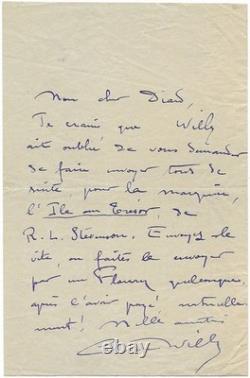 Mon cher Diard,
Je crains que Willy
ait oublié de vous demander
de faire envoyer tout de
suite, pour la marquise,
l'Ile au Trésor, de
R. L. Stevenson. Envoyez-le
vite, ou faites-le envoyer
par un Floury quelconque,
après l'avoir payé naturelle
ment! Mille amitiés
Colette Willy